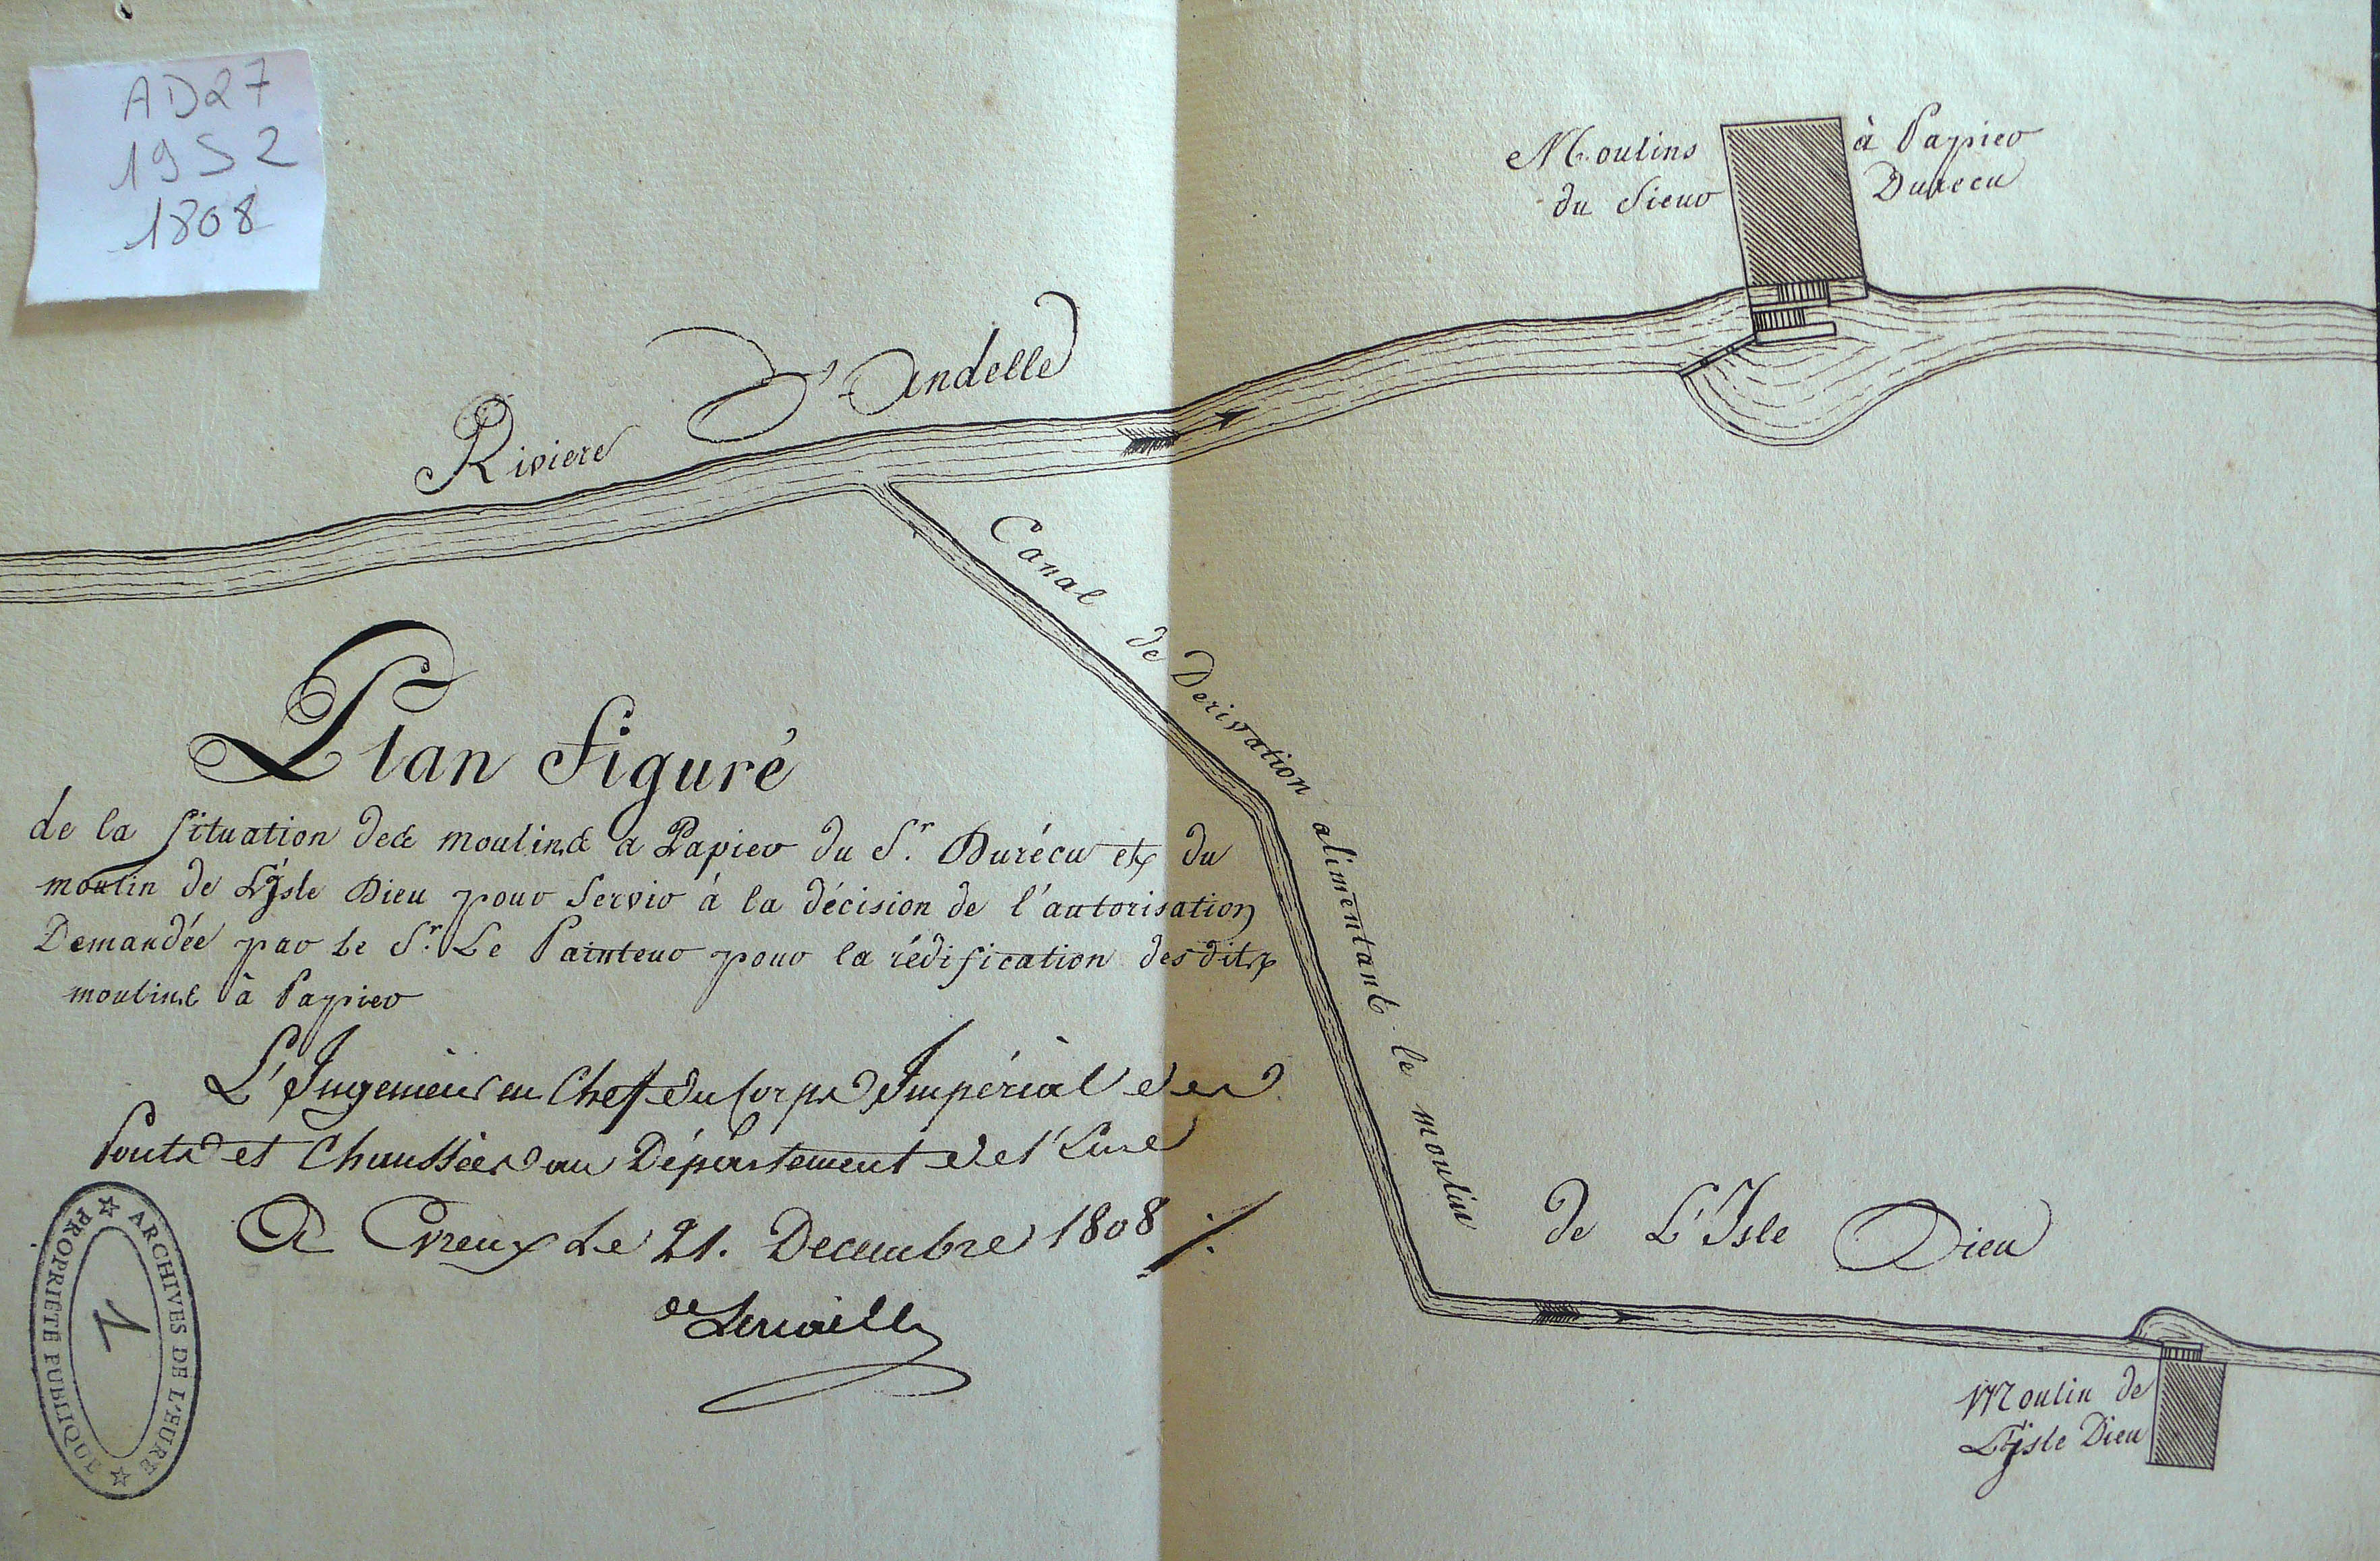 AD27
19S2
1808
Moulins à Papier
du Sieur Durecu
Riviere D'Andelle
Canal de Derivation alimentant le moulin de L'Isle Dieu
Plan figuré
de la situation des moulins a Papier du Sr. Durécu et du
moulin de L'Isle Dieu pour servir à la décision de l'autorisation
Demandée par le Sr. Le Painteur pour la rédification des dits
moulins à Papier
L'Ingenieur en Chef du Corps Impérial des
Ponts et Chaussées au Département de l'Eure
A Evreux Le 21. Decembre 1808
Moulin de
L'Isle Dieu
ARCHIVES DE L'EURE
PROPRIETE PUBLIQUE